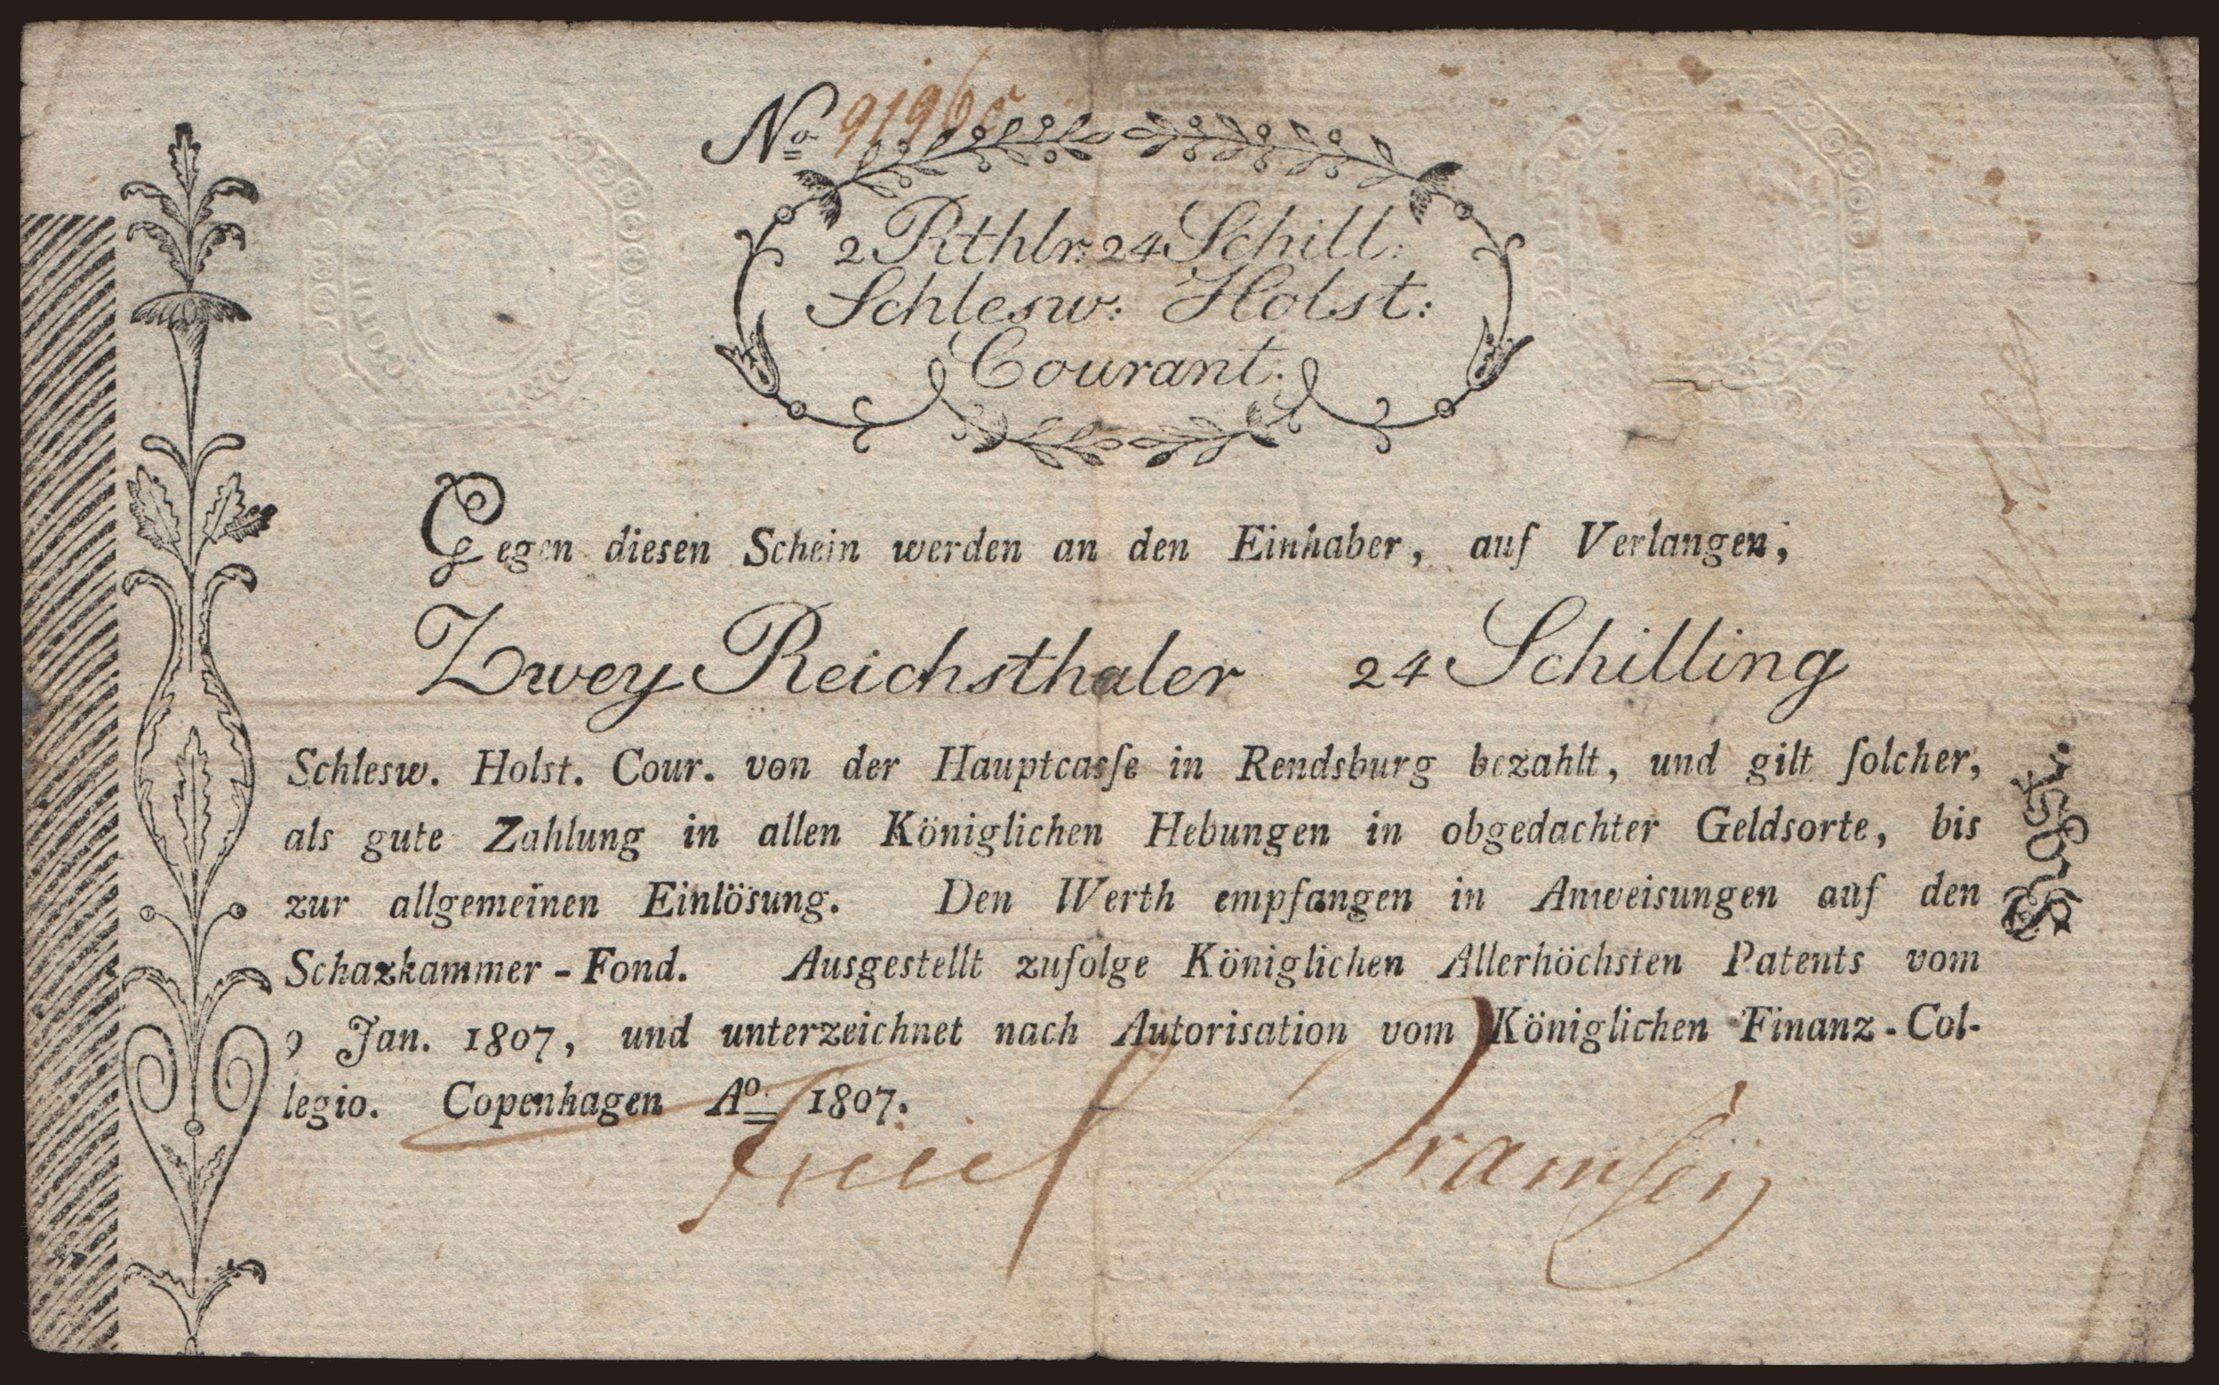 No 9196
2 Rthlr: 24 Schill:
Schlesw: Holst:
Courant.
Gegen diesen Schein werden an den Einhaber, auf Verlangen,
Zwey Reichsthaler 24 Schilling
Schlesw. Holst. Cour. von der Hauptcasſe in Rendsburg bezahlt, und gilt ſolcher,
als gute Zahlung in allen Königlichen Hebungen in obgedachter Geldsorte, bis
zur allgemeinen Einlösung. Den Werth empfangen in Anweisungen auf den
Schazkammer-Fond. Ausgestellt zufolge Königlichen Allerhöchsten Patents vom
9 Jan. 1807, und unterzeichnet nach Autorisation vom Königlichen Finanz-Col-
legio. Copenhagen Ao 1807.